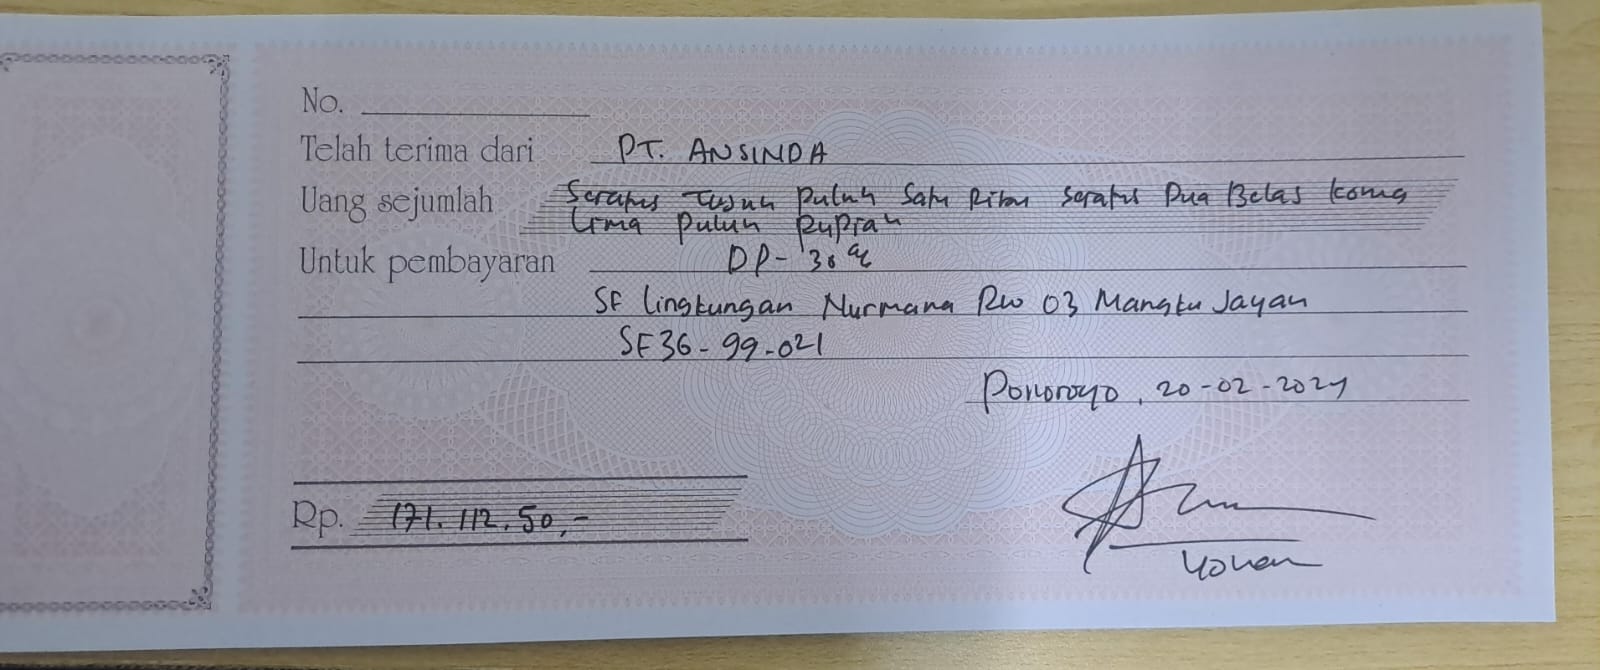 No.
Telah terima dari PT. ANSINDA
Uang sejumlah Seratus Tujuh Puluh Satu Ribu Seratus Dua Belas koma
Lima Puluh Rupiah
Untuk pembayaran DP - 30%
SF Lingkungan Nurmana RW 03 Mangku Jayan
SF36-99-021
Ponorogo, 20-02-2024
Rp. 171.112.50,-
Yohan